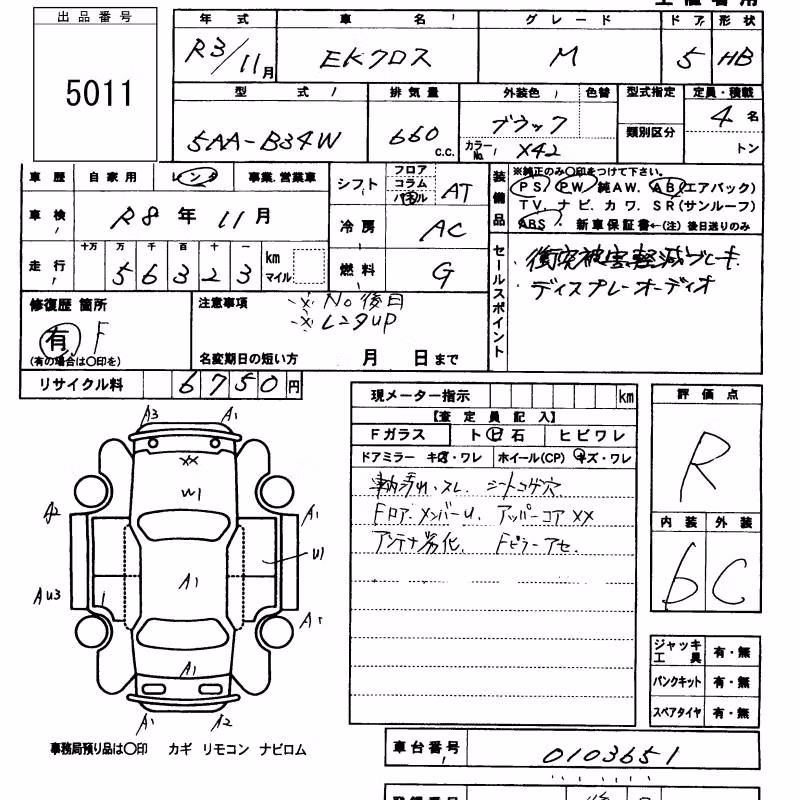 出品番号
5011
年式 車名 グレード ドア 形状
R3/11月 EKクロス M 5 HB
型式 排気量 外装色 色替 型式指定 定員・積載
5AA-B34W 660 c.c. ブラック 類別区分 4名
カラーNo. X42 トン
車歴 自家用 レンタ 事業.営業車 シフト フロア コラム パネル AT
車検 R8年11月 冷房 AC
走行 十万 万 千 百 十 一 km マイル 燃料 G
56323
装備品 ※純正のみ〇印をつけて下さい。
PS PW 純AW. AB(エアバック)
TV. ナビ. カワ. SR(サンルーフ)
ABS. 新車保証書←(注) 後日送りのみ
セールスポイント
衝突被害軽減ブレーキ
ディスプレーオーディオ
修復歴 箇所
有 F
(有の場合は〇印を)
注意事項
※No後日
※レンタUP
名変期日の短い方 月 日まで
リサイクル料 6750円
現メーター指示 km
【査定員記入】
Fガラス トビ石 ヒビワレ
ドアミラー キズ・ワレ ホイール(CP) キズ・ワレ
車内汚れ.スレ. シートコゲ穴
Fロア.メンバーU. アッパーコアXX
アンテナ劣化. Fピラーアセ.
評価点
R
内装 外装
6 C
A3 A1
XX
W1
A2 A1
U1
A1
AU3
A1
A1
A1 A2
ジャッキ工具 有・無
パンクキット 有・無
スペアタイヤ 有・無
事務局預り品は〇印 カギ リモコン ナビロム
車台番号 0103651